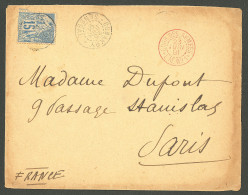 15
Madame Dupont
9 Passage Stanislas
Paris
FRANCE